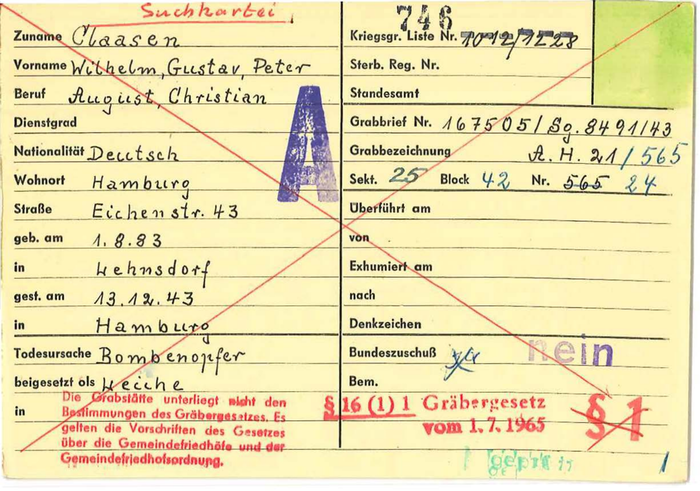 Suchkartei
Zuname Claasen
Vorname Wilhelm, Gustav, Peter
Beruf August, Christian
Dienstgrad
Nationalität Deutsch
Wohnort Hamburg
Straße Eichenstr. 43
geb. am 1.8.83
in Lehnsdorf
gest. am 13.12.43
in Hamburg
Todesursache Bombenopfer
beigesetzt als Leiche
in
Die Grabstätte unterliegt nicht den
Bestimmungen des Gräbergesetzes. Es
gelten die Vorschriften des Gesetzes
über die Gemeindefriedhöfe und der
Gemeindefriedhofsordnung.
A
746
Kriegsgr. Liste Nr. 1012/1228
Sterb. Reg. Nr.
Standesamt
Grabbrief Nr. 167505/Sg. 8491/43
Grabbezeichnung A. H. 21/565
Sekt. 25 Block 42 Nr. 565 24
Überführt am
von
Exhumiert am
nach
Denkzeichen
Bundeszuschuß ja nein
Bem.
§ 16 (1) 1 Gräbergesetz
vom 1.7.1965
§ 1
1